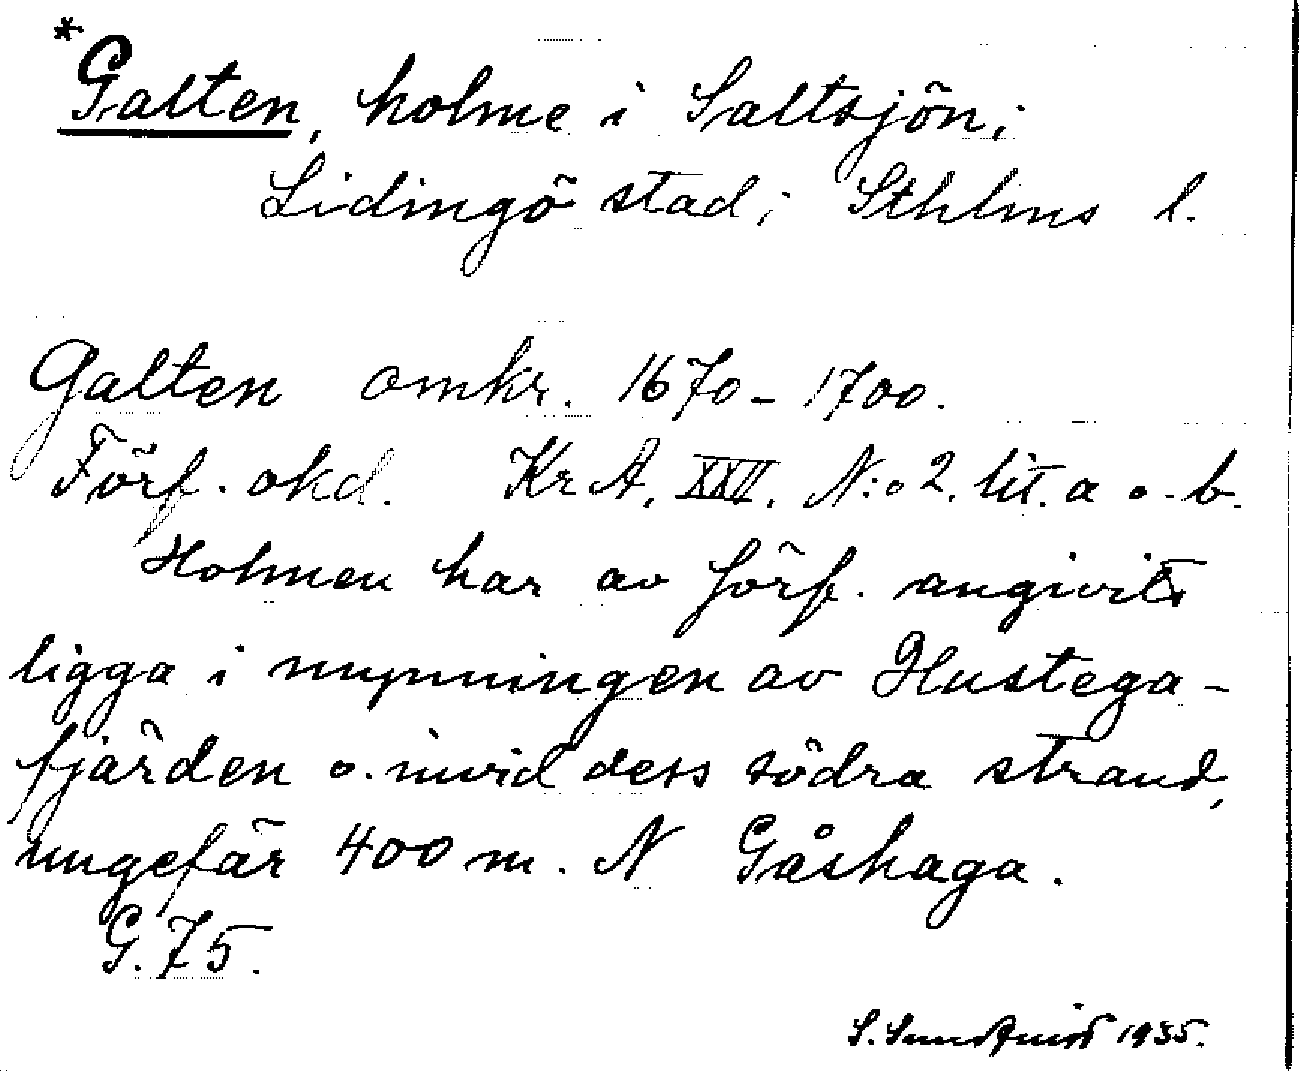 *Galten, holme i Saltsjön;
Lidingö stad; Sthlms l.
Galten omkr. 1670-1700.
Förf. okd. KrA. XXII. N:o 2. lit. a o. b.
Holmen har av förf. angivits
ligga i mynningen av Hustega-
fjärden o. invid dess södra strand,
ungefär 400 m. N Gåshaga.
G. 75.
S. Sundqvist 1935.